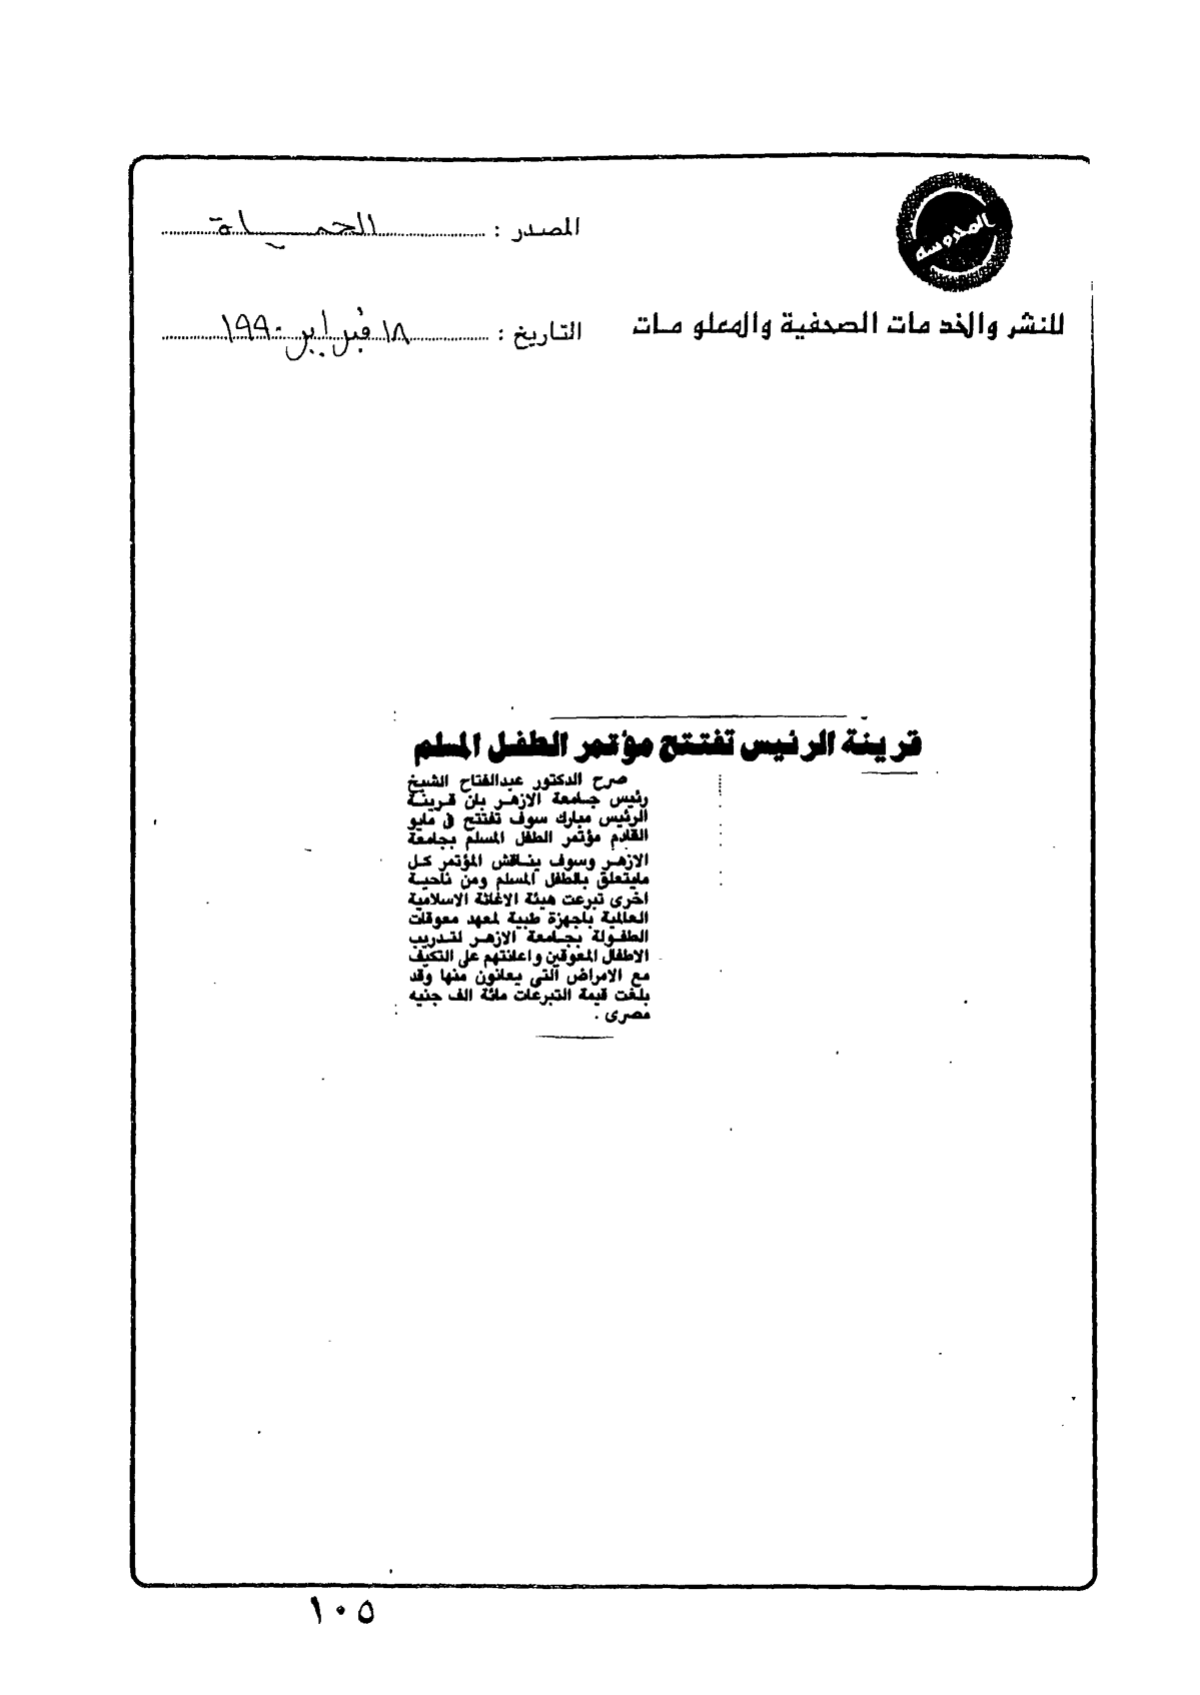 المحروسة
للنشر والخدمات الصحفية والمعلومات
المصدر : الحياة
التاريخ : ١٨ فبراير ١٩٩٠
قرينة الرئيس تفتتح مؤتمر الطفل المسلم
صرح الدكتور عبدالفتاح الشيخ
رئيس جامعة الازهر بان قرينة
الرئيس مبارك سوف تفتتح فى مايو
القادم مؤتمر الطفل المسلم بجامعة
الازهر وسوف يناقش المؤتمر كل
مايتعلق بالطفل المسلم ومن ناحية
اخرى تبرعت هيئة الاغاثة الاسلامية
العالمية باجهزة طبية لمعهد معوقات
الطفولة بجامعة الازهر لتدريب
الاطفال المعوقين واعانتهم على التكيف
مع الامراض التى يعانون منها وقد
بلغت قيمة التبرعات مائة الف جنيه
مصرى .
١٠٥